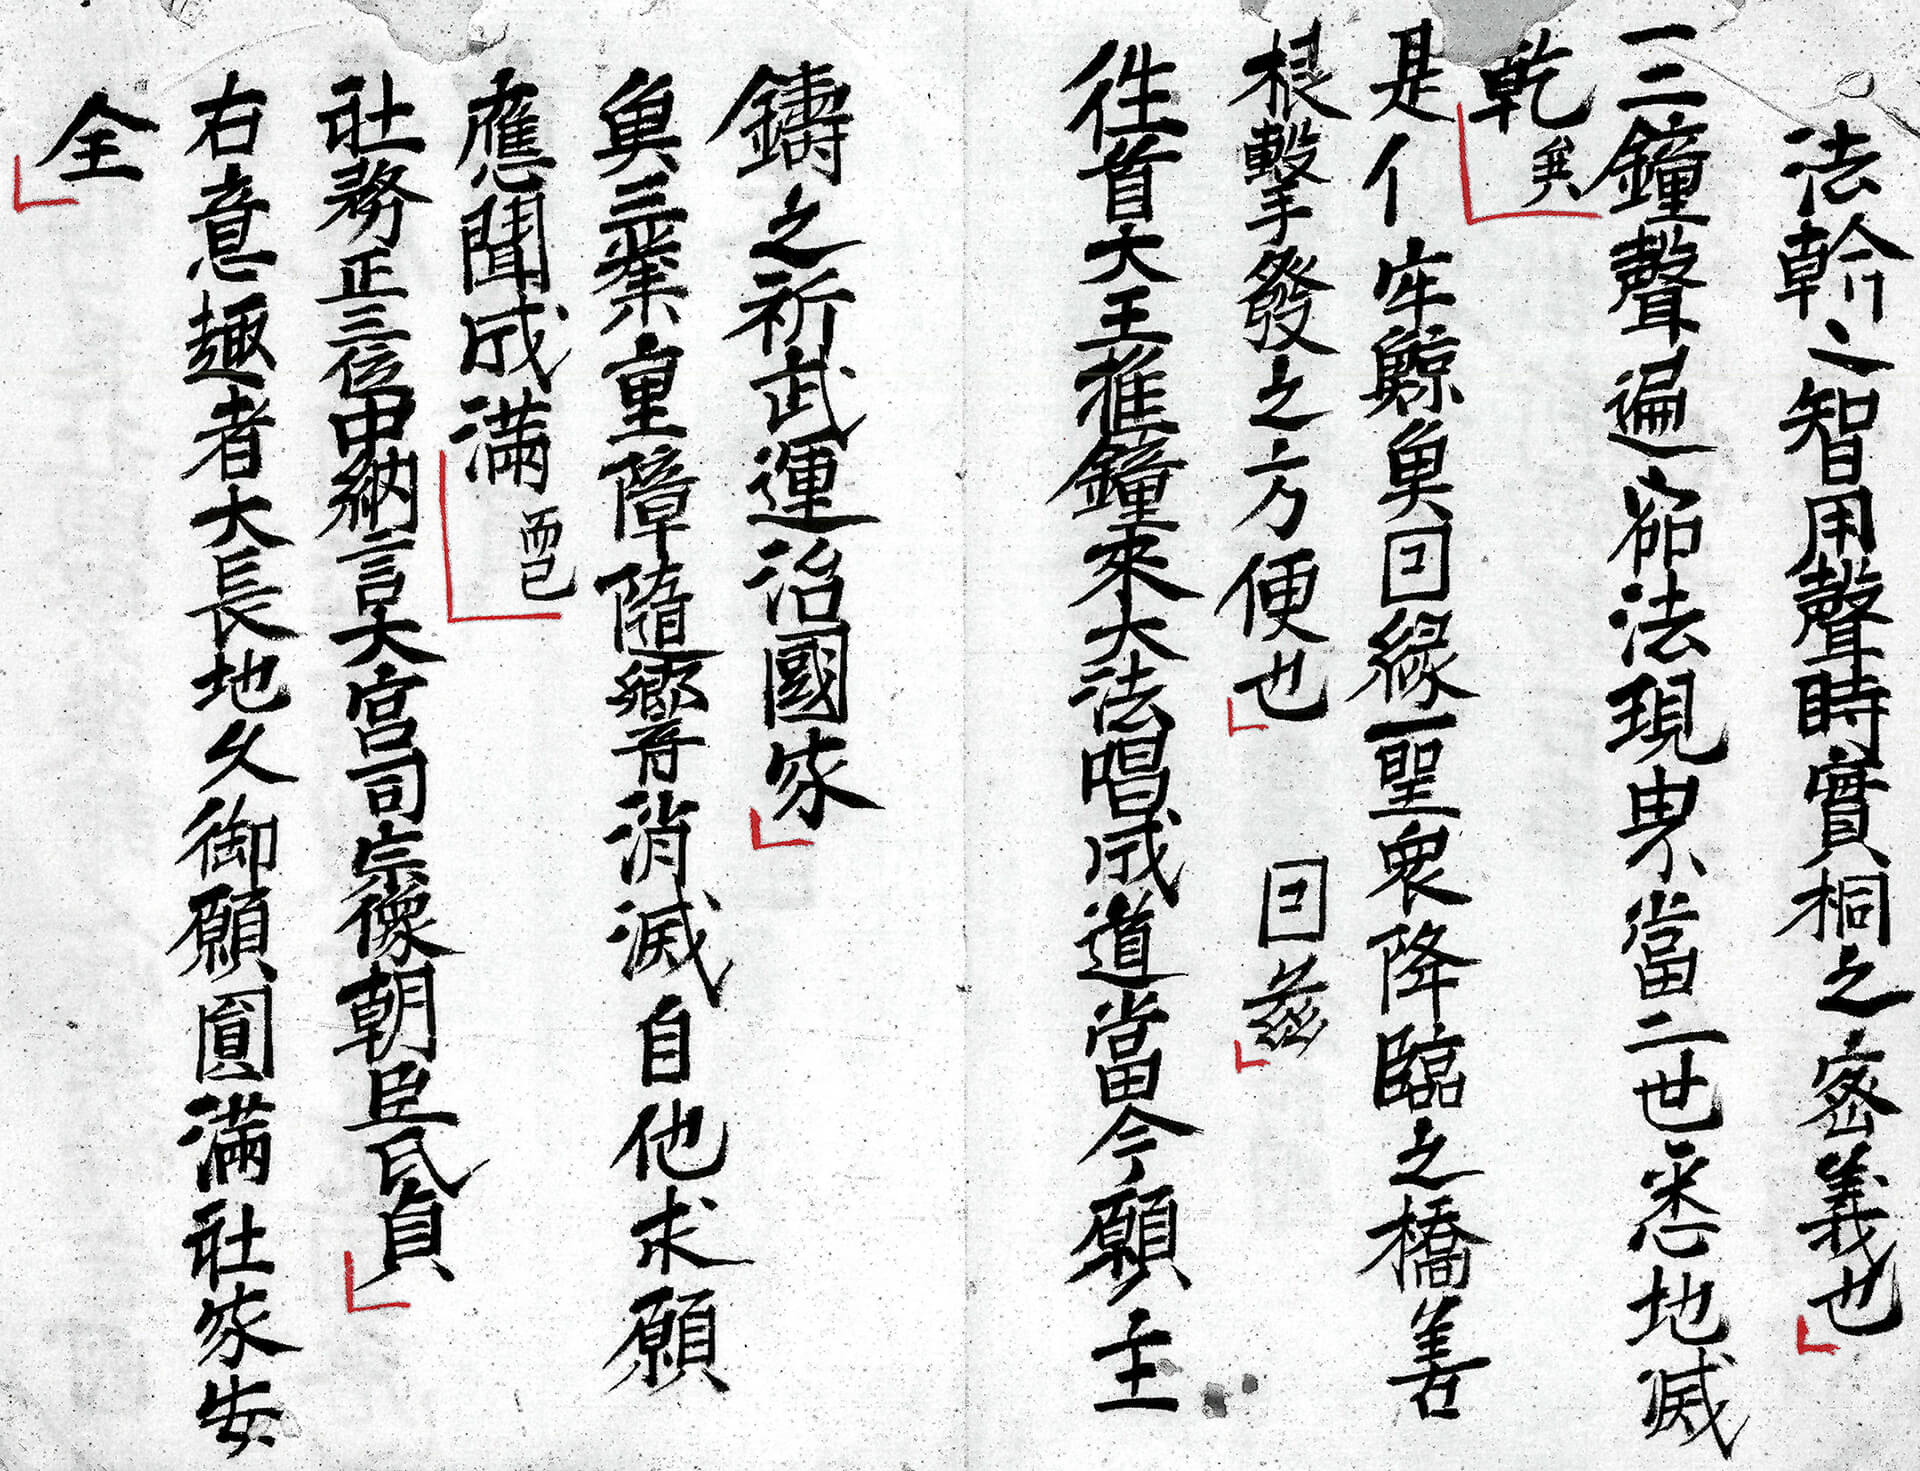 法幹之智用聲時實桐之密義也
三鐘聲遍法現界當二世悉地滅
乾矣
是亻牢鯨魚回緣一聖衆降臨之橋善
根擊發之方便也 回茲
徃首大王推鐘來大法唱成道當今願主
鑄之祈武運治國家
魚三業重障隨響消滅自他求願
應聞成満而已
社務正三位中納言大宮司宗像朝臣氏貞
右意趣者大長地久御願圓満社家安
全